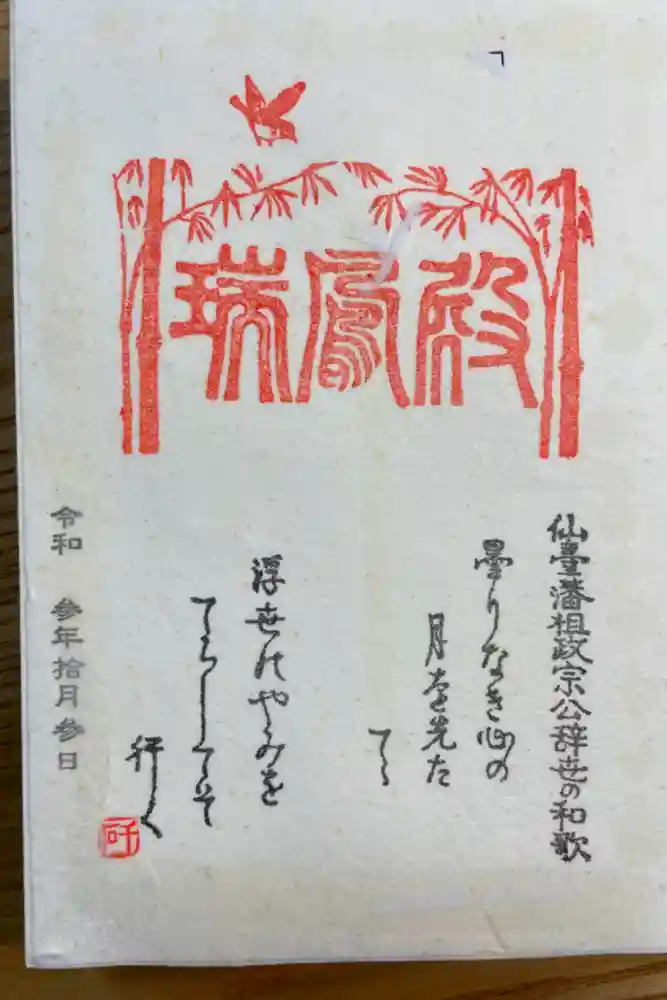 瑞鳳殿
仙臺藩祖政宗公辞世の和歌
曇りなき心の
月を先た
てゝ
浮世のやみを
てらしてそ
行く
令和 参年拾月参日